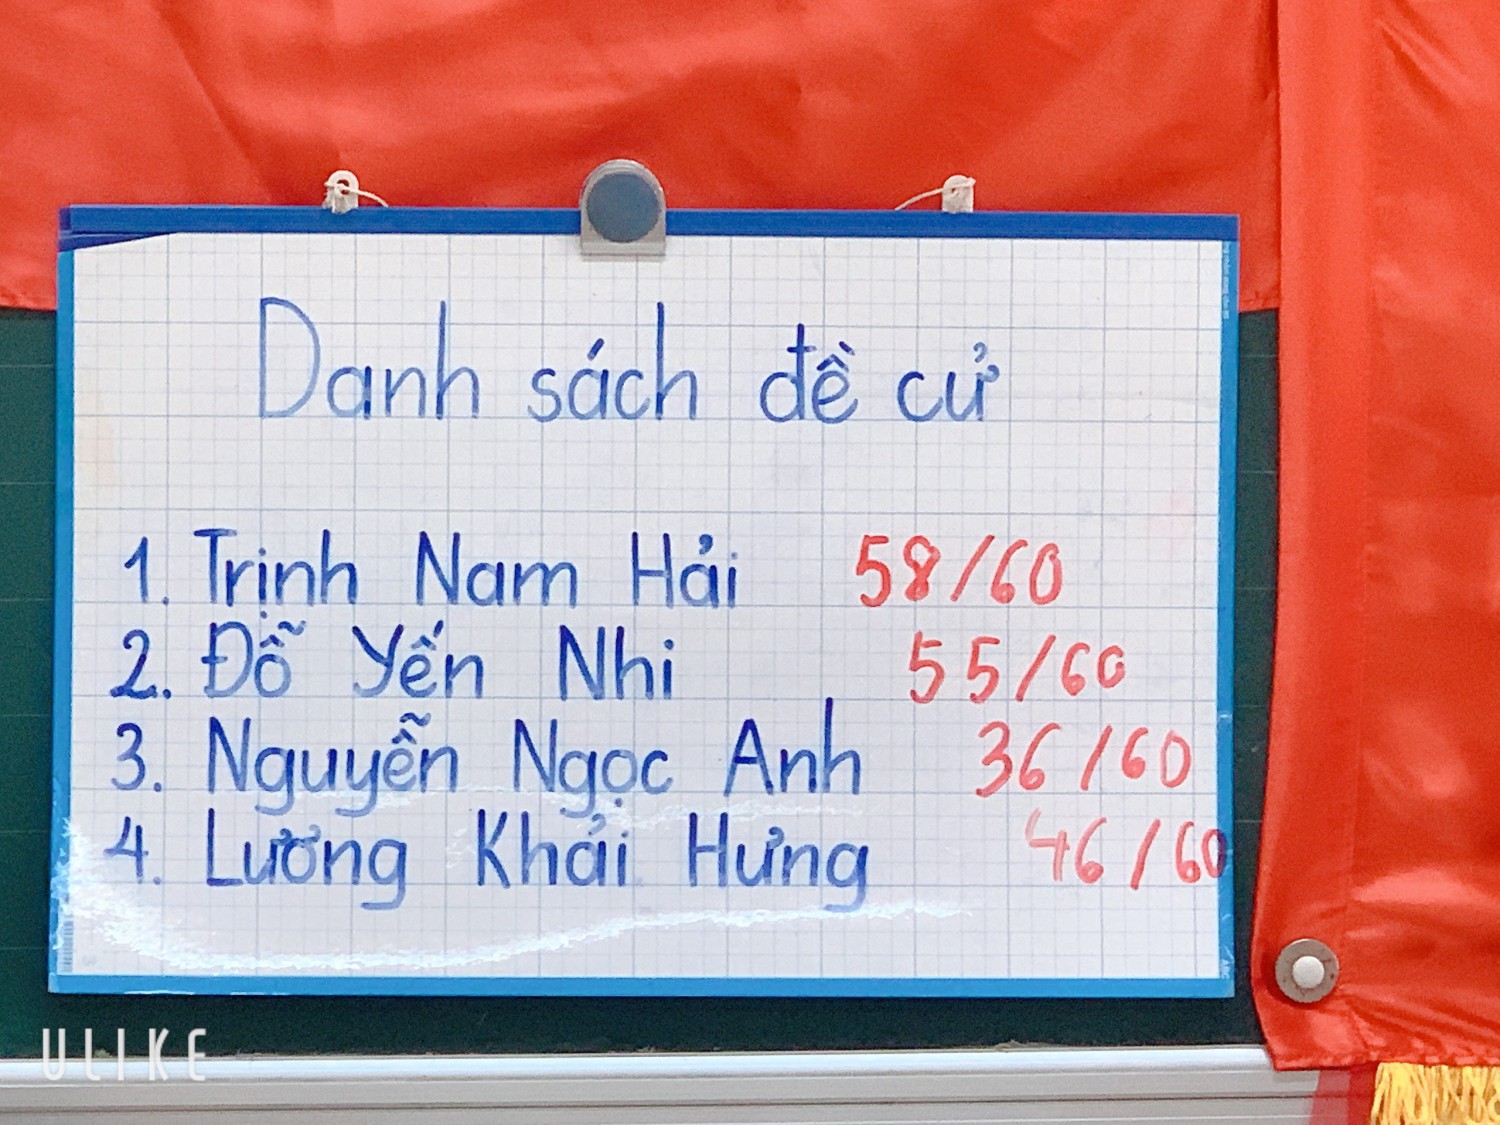 Danh sách đề cử
1. Trịnh Nam Hải 58/60
2. Đỗ Yến Nhi 55/60
3. Nguyễn Ngọc Anh 36/60
4. Lương Khải Hưng 46/60
ULIKE